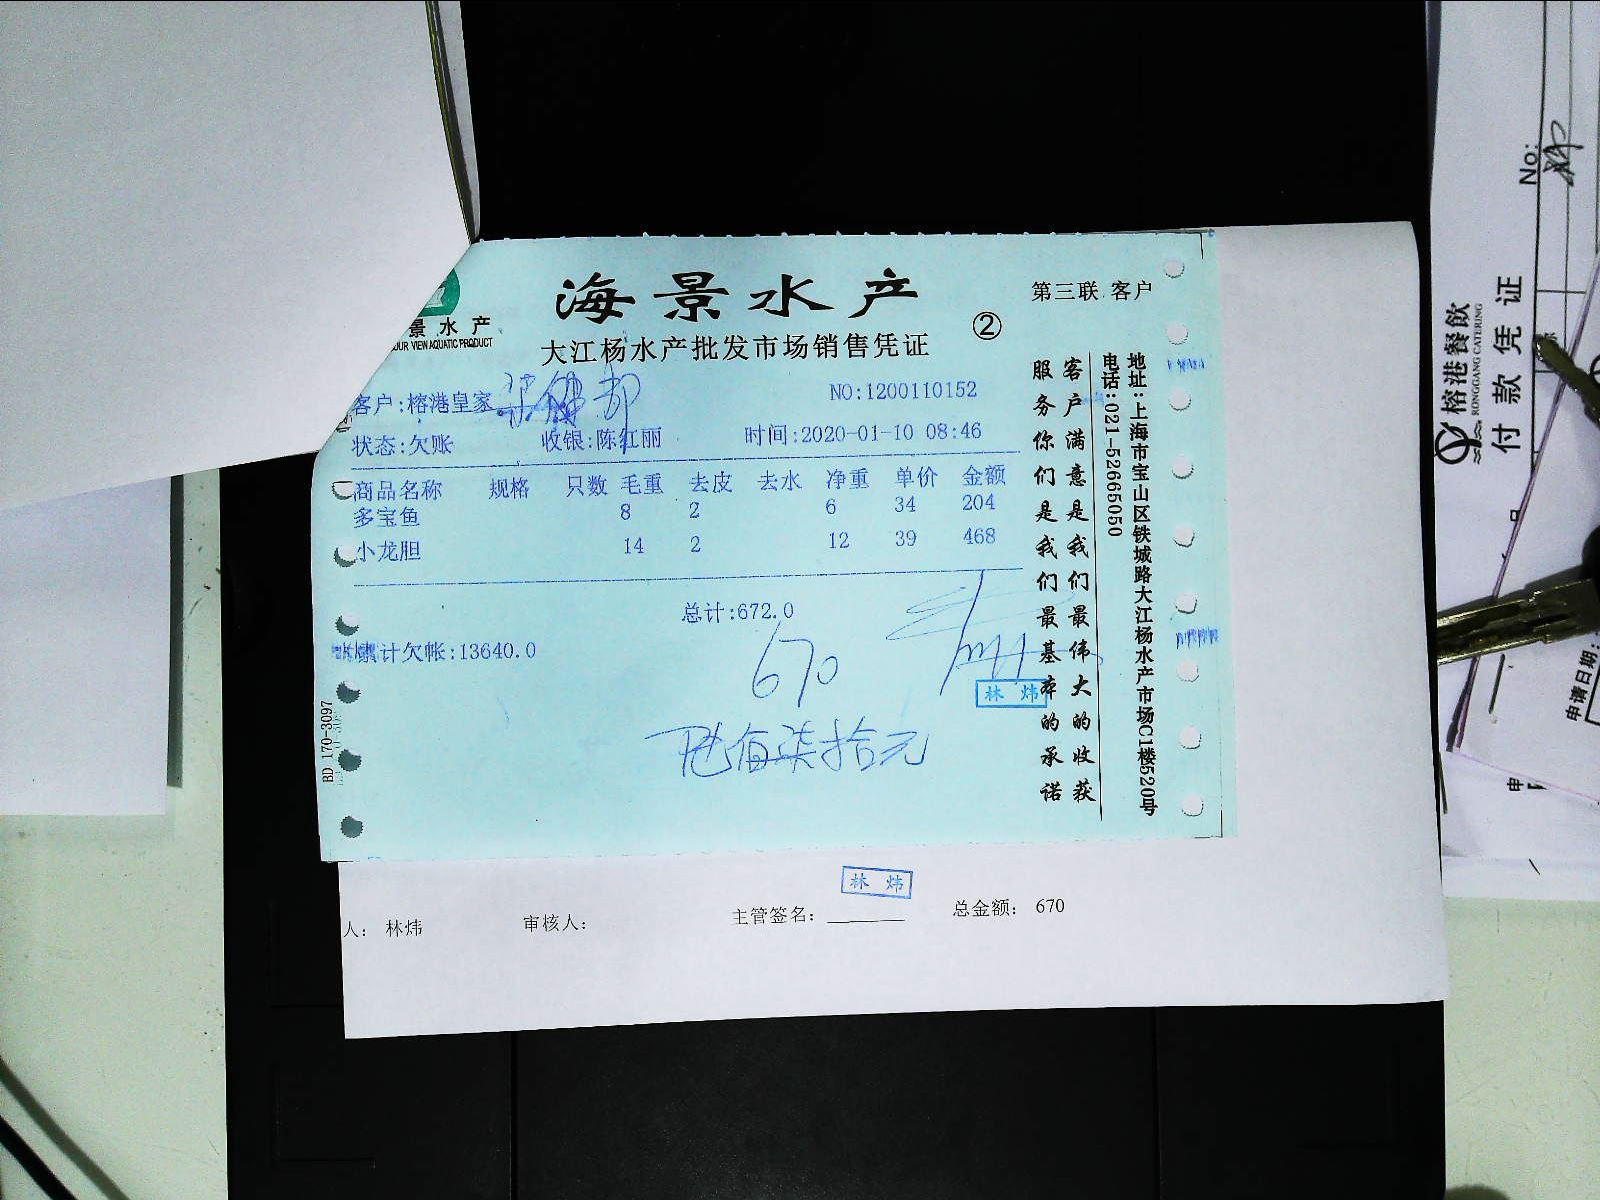 景水产
OUR VIEW AQUATIC PRODUCT
海景水产
大江杨水产批发市场销售凭证
②
第三联 客户
客户:榕港皇家
NO:1200110152
状态:欠账 收银:陈红丽 时间:2020-01-10 08:46
商品名称 规格 只数 毛重 去皮 去水 净重 单价 金额
多宝鱼 8 2 6 34 204
小龙胆 14 2 12 39 468
总计:672.0
累计欠帐:13640.0
670
陆佰柒拾元
林 炜
客户满意是我们最伟大的收获
服务你们是我们最基本的承诺
地址:上海市宝山区铁城路大江杨水产市场C1楼520号
电话:021-52665050
BD 170-3097
林 炜
人: 林炜 审核人: 主管签名: 总金额: 670
No:
榕港餐飲
RONGGANG CATERING
付款凭证
申请日期: